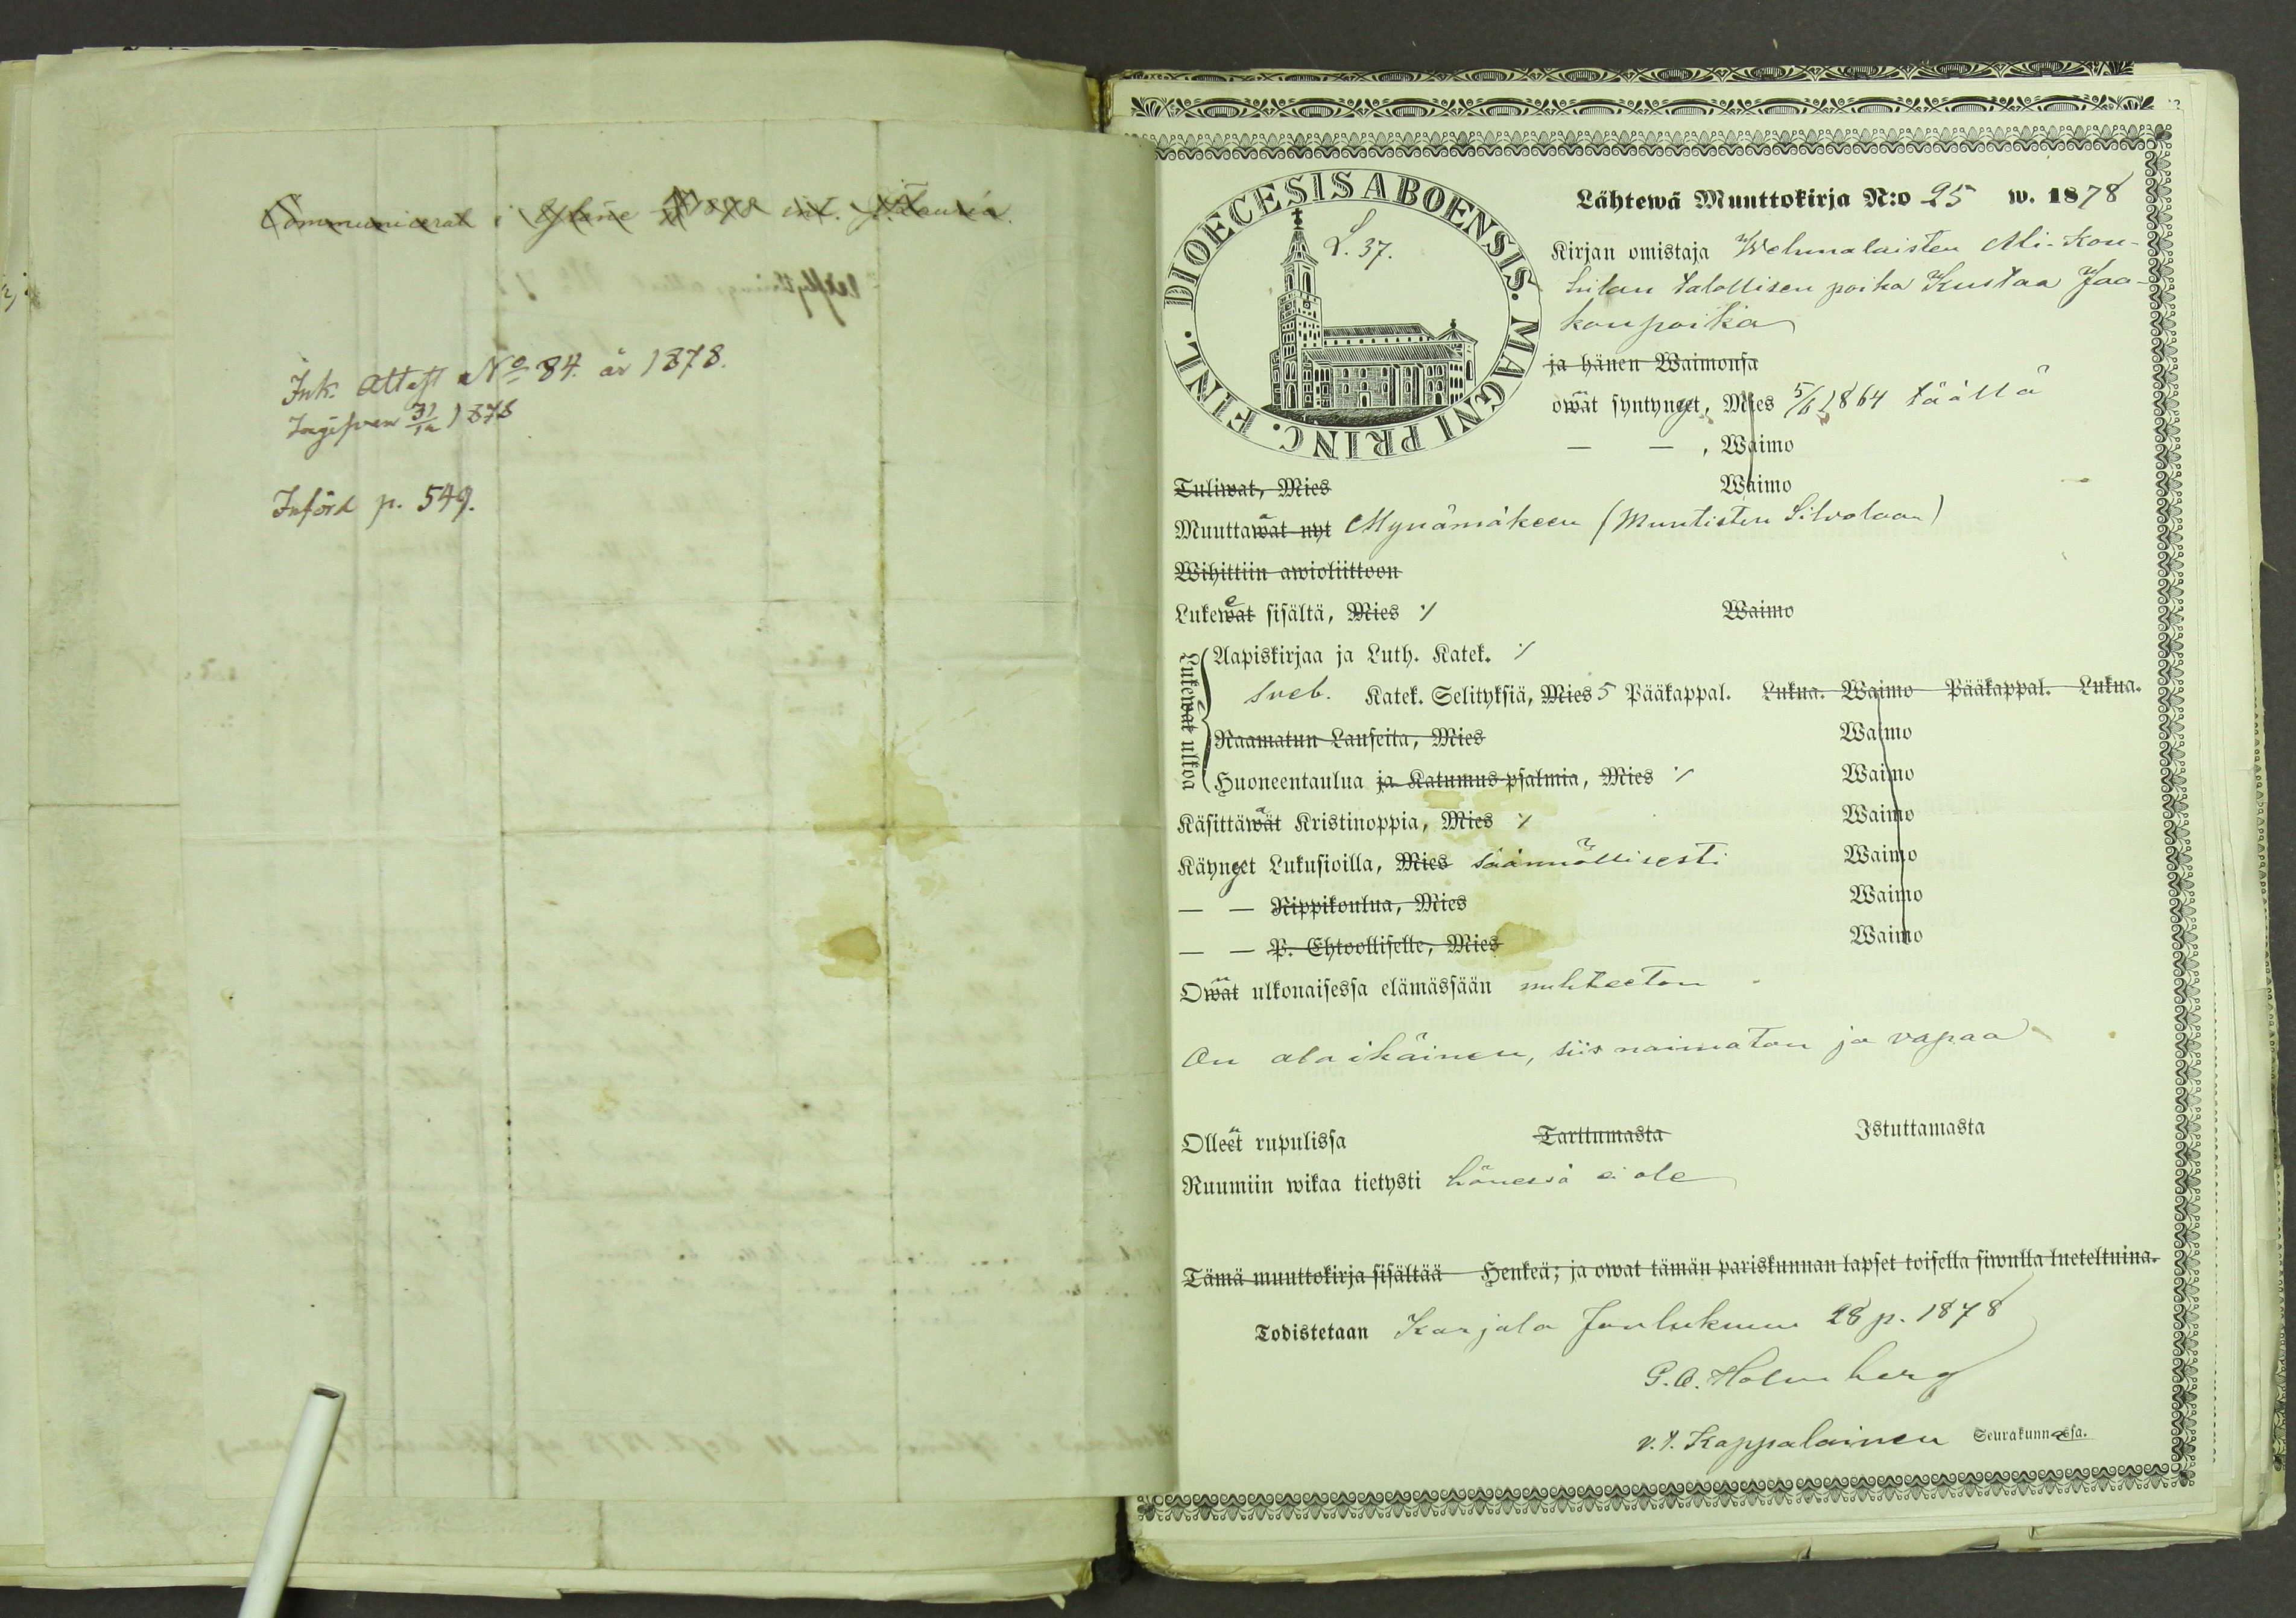 Communicerat i Yläne
Ink. Attest No 84. år 1878.
Ingifven 31/12 1878
Införd p. 549.
DIOECESIS ABOENSIS. MAGNI PRINC. FINL.
L. 37.
Lähtewä Muuttokirja N:o 25 w. 1878
Kirjan omistaja Wehmalaisten Ali-Kou-
hilan talollisen poika Kustaa Jaa-
konpoika
ja hänen Waimonsa
owat syntynyet, Mies 5/6 1864 täällä
— — , Waimo
Tuliwat, Mies Waimo
Muuttawat nyt Mynämäkeen (Muntisten Silvolaan)
Wihittiin awioliittoon
Lukewat sisältä, Mies ⁒ Waimo
Lukewat ulkoa
Aapiskirjaa ja Luth. Katek. ⁒
Sveb. Katek. Selityksiä, Mies 5 Pääkappal. Lukua. Waimo Pääkappal. Lukua.
Raamatun Lauseita, Mies Waimo
Huoneentaulua ja Katumus-psalmia, Mies ⁒ Waimo
Käsittäwät Kristinoppia, Mies ⁒ Waimo
Käynyet Lukusioilla, Mies säännöllisesti Waimo
— — Rippikoulua, Mies Waimo
— — P. Ehtoolliselle, Mies Waimo
Owat ulkonaisessa elämässään nuhteeton
On ala ikäinen, siis naimaton ja vapaa
Olleet rupulissa Tarttumasta Istuttamasta
Ruumiin wikaa tietysti hänessä ei ole
Tämä muuttokirja sisältää Henkeä; ja owat tämän pariskunnan lapset toisella siwulla lueteltuina.
Todistetaan Karjala Joulukuun 28 p. 1878
G. A. Holmberg
v. t. Kappalainen Seurakunnassa.